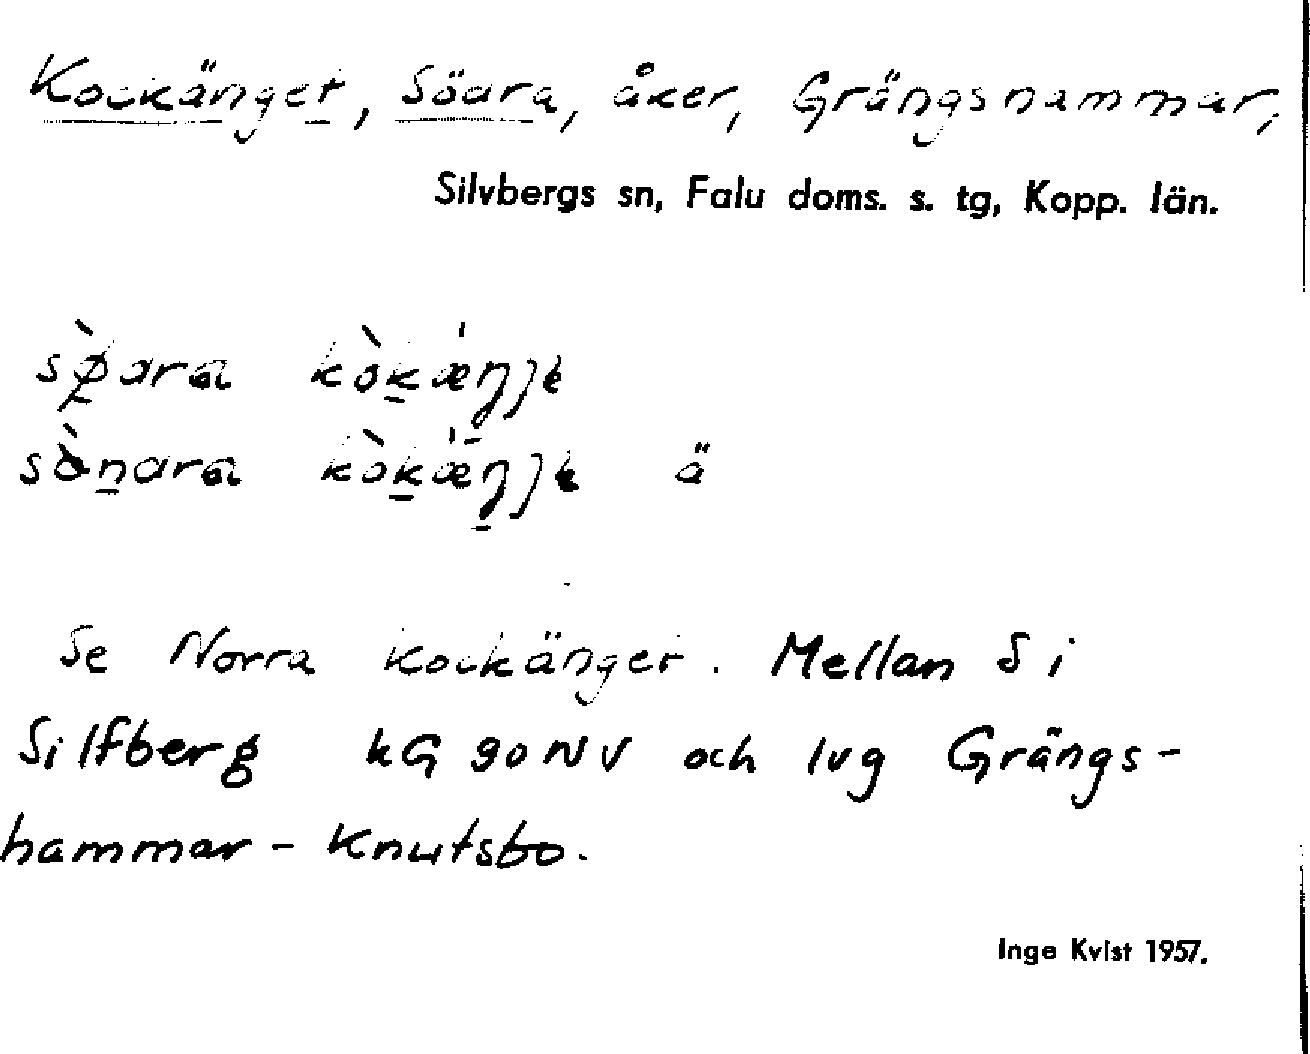 Kockänget, Söara, åker, Grängshammar,
Silvbergs sn, Falu doms. s. tg, Kopp. län.
ä
Se Norra Kockänget. Mellan S i
Silfberg kG 90 NV och lvg Grängs-
hammar - Knutsbo.
Inge Kvist 1957.